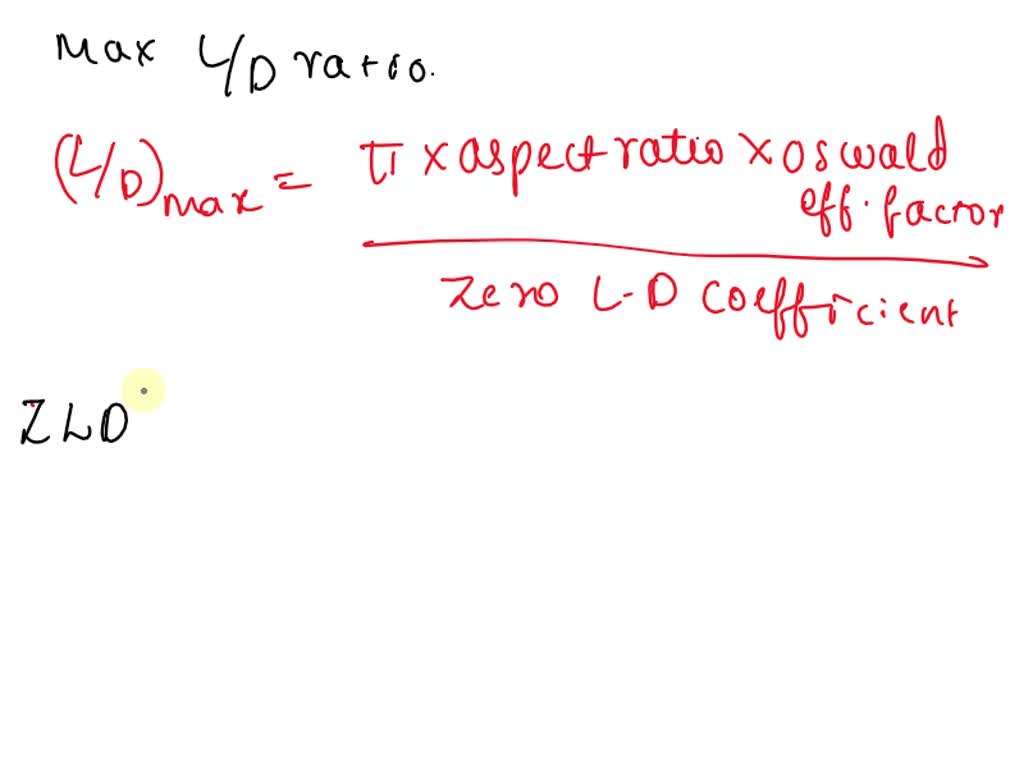 Max L/D ratio.
(L/D)max = π × aspect ratio × oswald
eff. factor
Zero L-D coefficient
ZLD